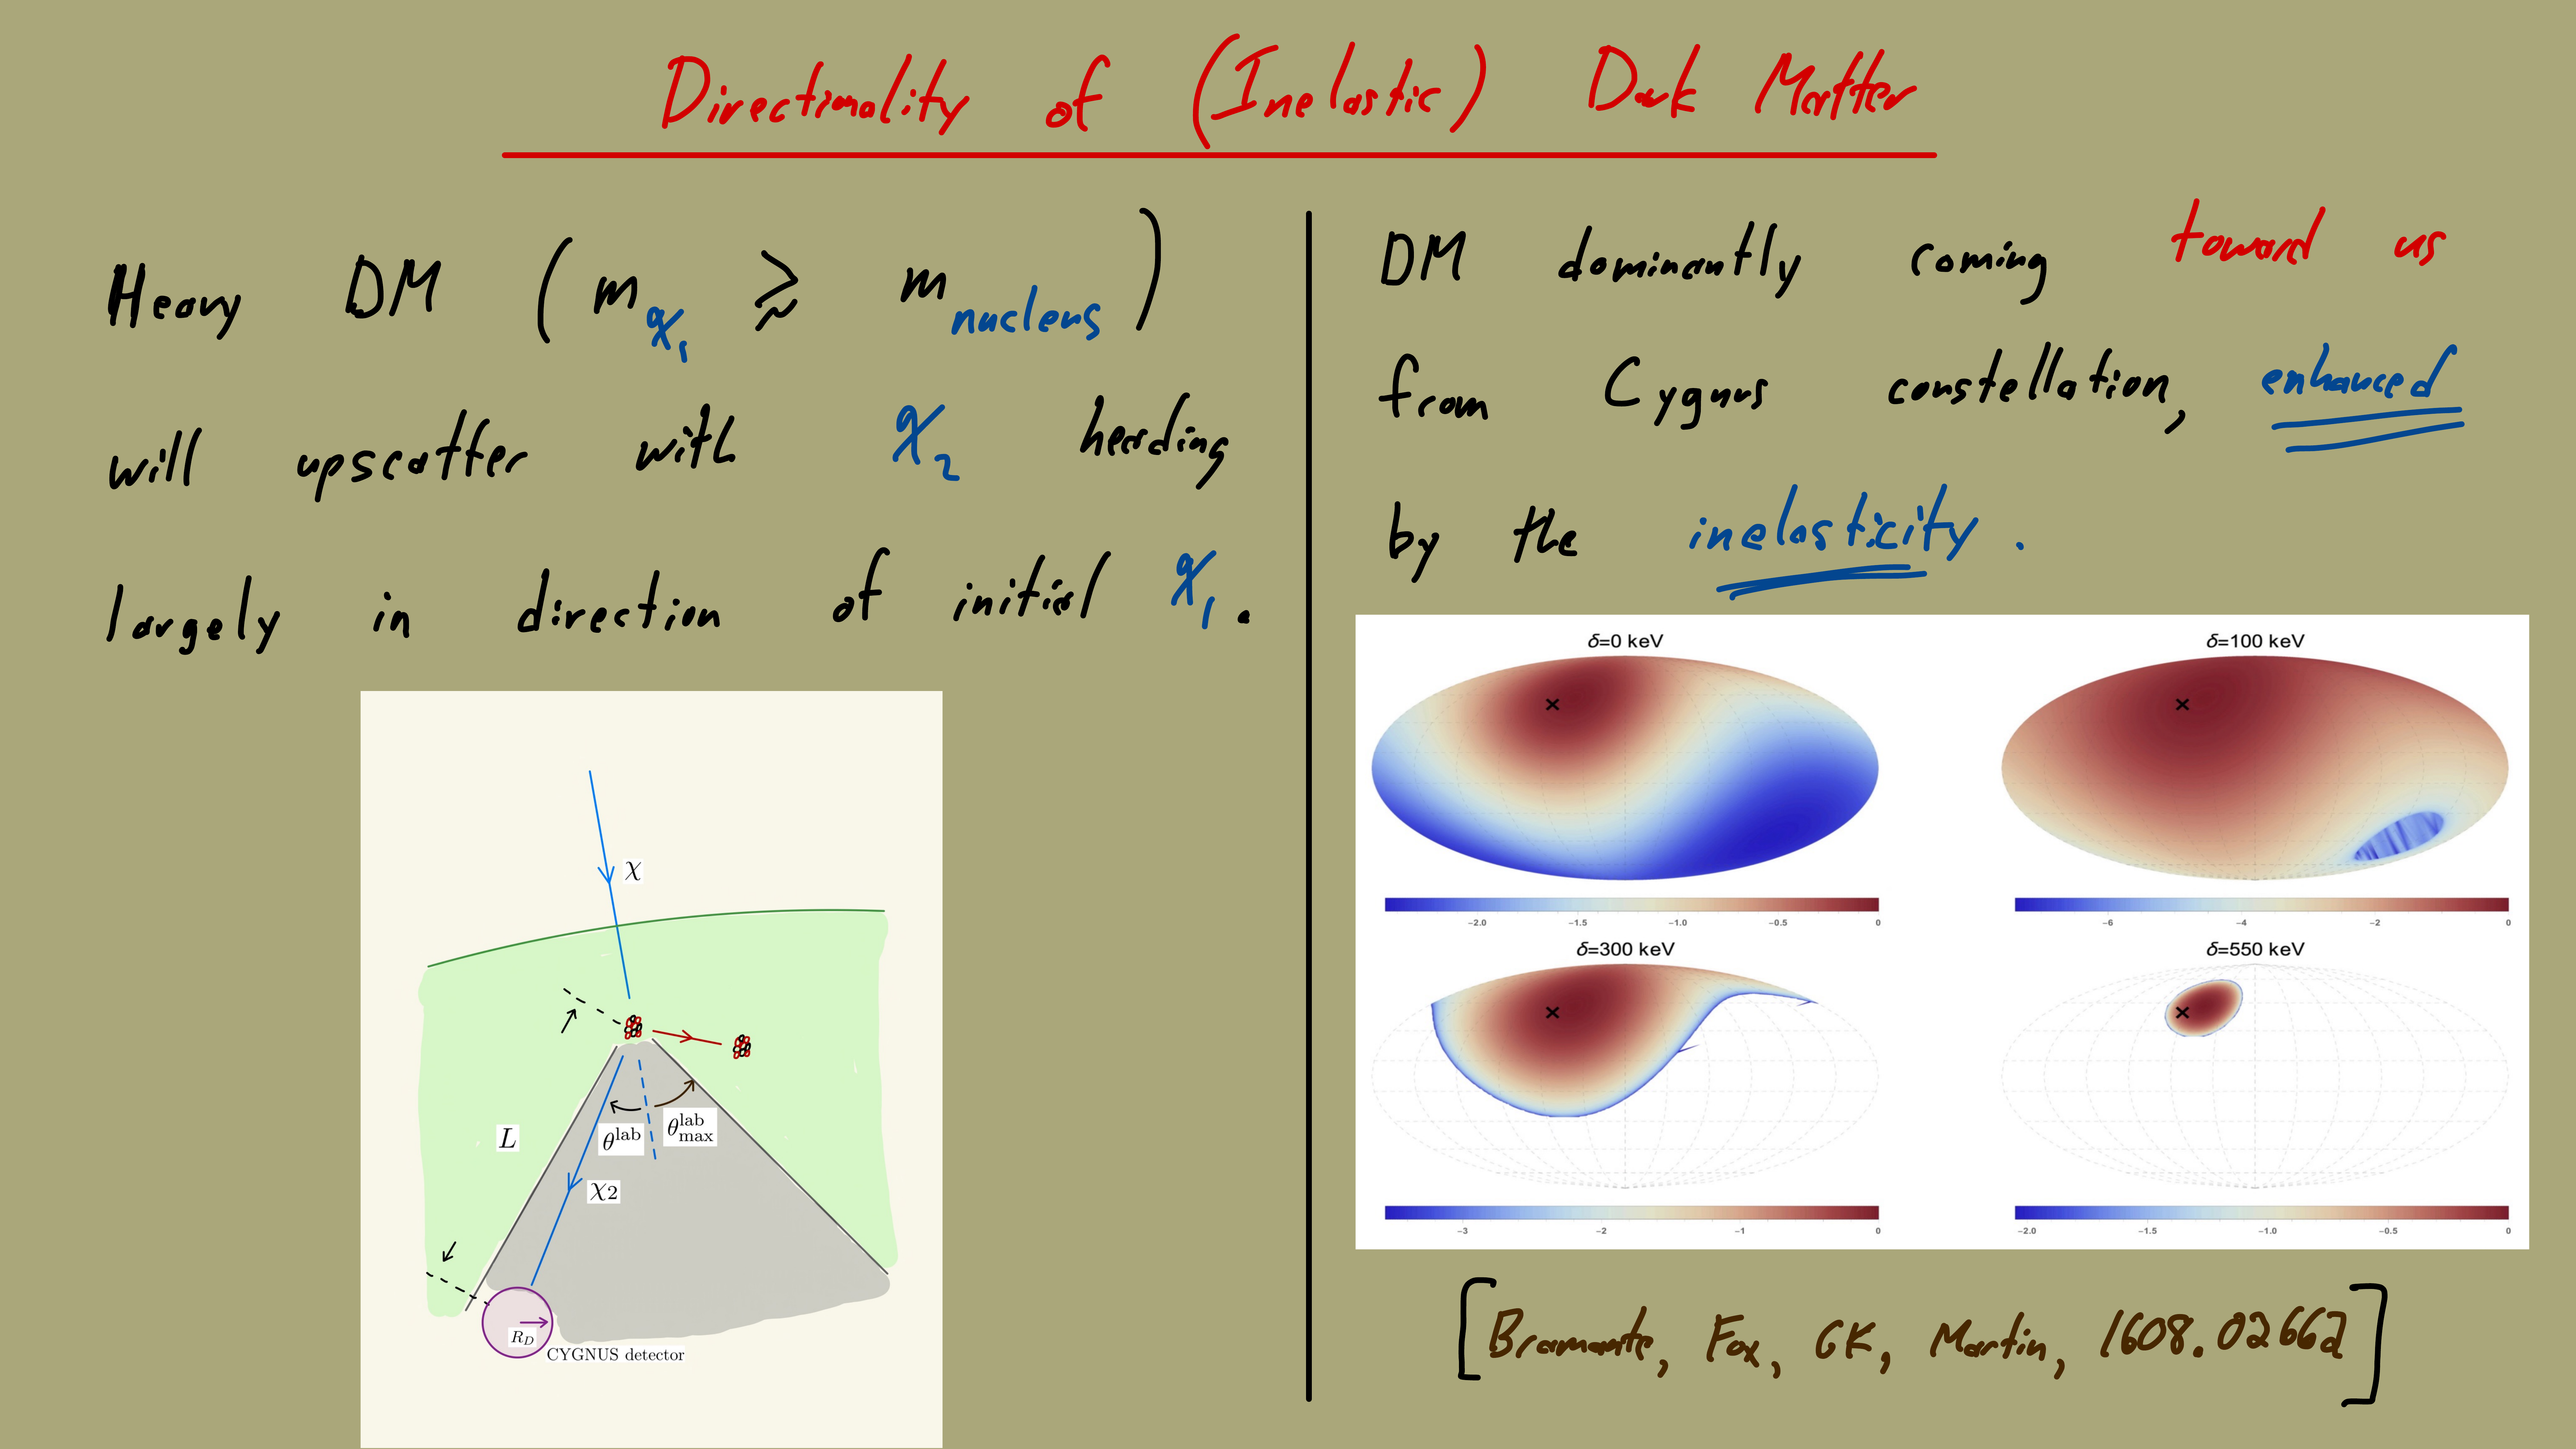 Directionality of (Inelastic) Dark Matter
Heavy DM (m_χ₁ ≳ m_nucleus)
will upscatter with χ₂ heading
largely in direction of initial χ₁.
χ
L
θ^lab
θ^lab_max
χ2
R_D
CYGNUS detector
DM dominantly coming toward us
from Cygnus constellation, enhanced
by the inelasticity.
δ=0 keV
δ=100 keV
-2.0 -1.5 -1.0 -0.5 0
-6 -4 -2 0
δ=300 keV
δ=550 keV
-3 -2 -1 0
-2.0 -1.5 -1.0 -0.5 0
[Bramante, Fox, GK, Martin, 1608.02662]